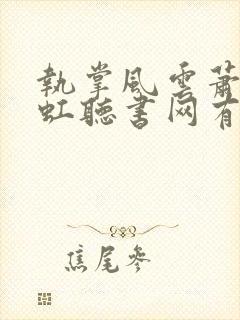 執掌風雲蕭
虹聽書网有
焦尾參